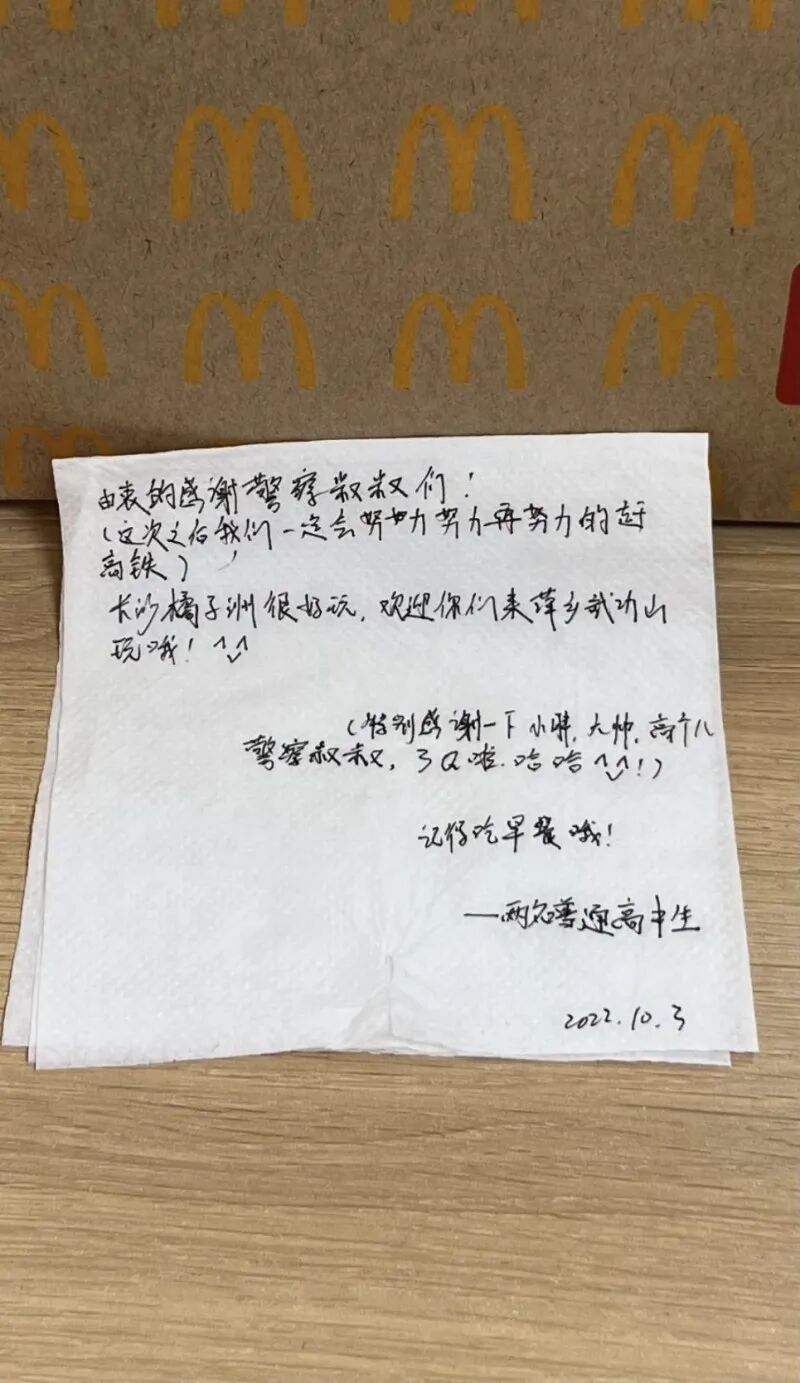 由衷的感谢警察叔叔们！
（这次之后我们一定会努力努力再努力的赶
高铁）
长沙橘子洲很好玩，欢迎你们来萍乡武功山
玩哦！^_^
（特别感谢一下小胖，大帅，高个儿
警察叔叔，3Q啦.哈哈^_^！）
记得吃早餐哦！
——两名普通高中生
2022.10.3